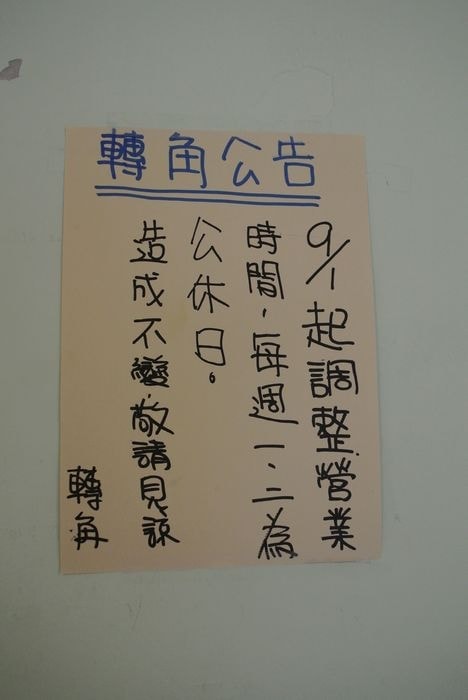 轉角公告
9/1起調整營業
時間，每週一、二為
公休日。
造成不變，敬請見諒
轉角